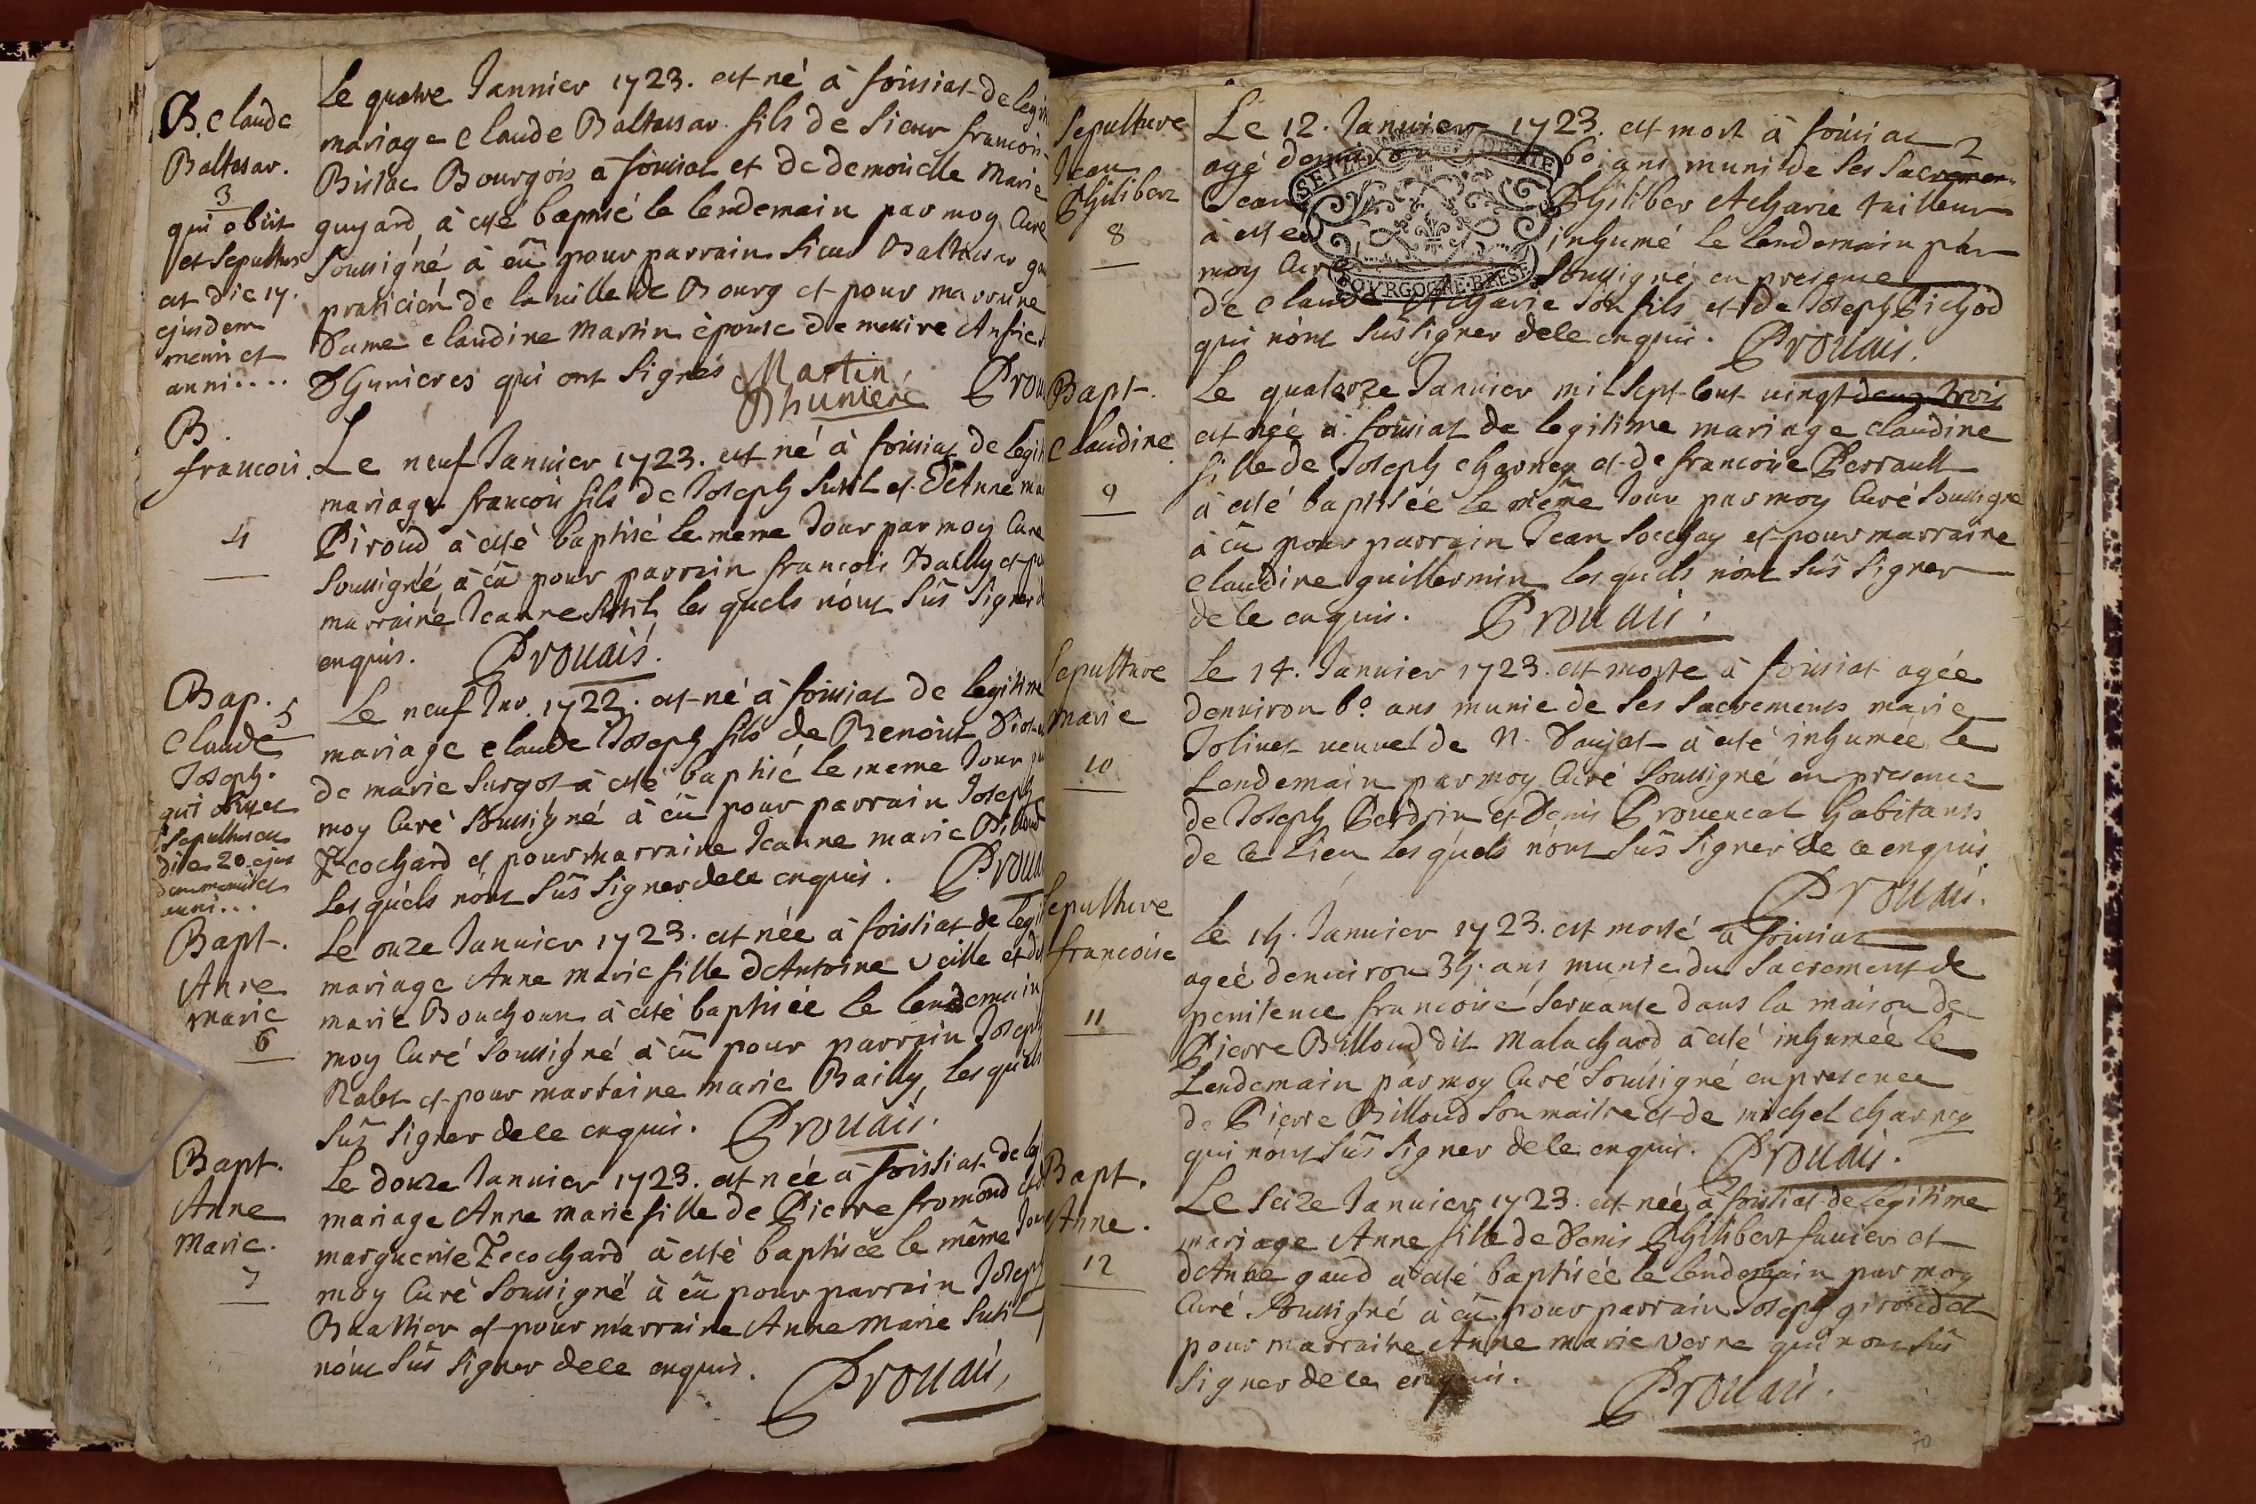 B. Claude
Baltasar.
3
qui obiit
et sepultus
est die 17.
ejusdem
mensis et
anni....
Le quatre Janvier 1723. est né à foissiat de legit
mariage Claude Baltasar fils de sieur francois
Bourgois a foissiat et de demoiselle Marie
guyard, à esté baptisé le lendemain par moy Curé
soussigné à eû pour parrain sieur Baltasar
praticien de la ville de Bourg et pour marraine
Dame Claudine Martin èpouse de messire
qui ont signés Martin, Prou
Dhuniere
B.
francois.
4
Le neuf Janvier 1723. est né à foissiat de legit
mariage francois fils de Joseph Sutil et d'Anne ma
Piroud à esté baptisé le meme Jour par moy Curé
soussigné, à eû pour parrain francois Bailly et po
marraine Jeanne Sutil, les quels nònt sûs signer d
enquis. Prouais.
Bap. 5
Claude
Joseph.
qui obiit et
sepultus est
die 20 ejus
dem mensis et
anni...
Le neuf Jnv. 1722. est né à foissiat de legitime
mariage Claude Joseph fils de Benoist
de marie Surgot à esté baptisé le meme Jour
moy Curé soussigné à eû pour parrain Joseph
Ecochard et pour marraine Jeanne marie Billoud
Les quels nònt sûs signer de ce enquis. Prouai
Bapt.
Anne
marie
6
Le onze Janvier 1723. est née à foissiat de legit
mariage Anne marie fille d'Antoine Veille et de
marie Bouchoux à esté baptisée le lendemain
moy Curé soussigné à eû pour parrain Joseph
Rabet et pour marraine marie Bailly, les quels
sûs signer de ce enquis. Prouais.
Bapt.
Anne
Marie.
7
Le douze Janvier 1723. est née à foissiat de le
mariage Anne marie fille de Pierre fromond et d
marguerite Ecochard, à esté baptisée le même Jour
moy Curé soussigné, à eû pour parrain Joseph
Buattier et pour marraine Anne Marie Sutil
nònt sûs signer de ce enquis. Prouais,
Sepulture
Jean
Philibert
8
Le 12. Janvier 1723. est mort à foissiat 2
agé denviron 60. ans muni de ses sacremen
Jean Philiber Acharie tailleur
à esté inhumé le lendemain par
moy Curé soussigné en presence
de Claude Acharie son fils et de Joseph Pichod
qui nònt sûs signer de ce enquis. Prouais.
SEIZE
BOURGOGNE·BRESSE
Bapt.
Claudine
9
Le quatorze Janvier mil sept cent vingt deux trois
est née à foissiat de legitime mariage Claudine
fille de Joseph Charney et de francoise Perrault
à esté baptisée le même Jour par moy Curé soussigné
à eû pour parrain Jean Sochay et pour marraine
Claudine guillermin les quels nònt sûs signer
de ce enquis. Prouais.
Sepulture
marie
10
Le 14. Janvier 1723. est morte à foissiat agée
denviron 60 ans munie de ses sacrements marie
Jolivet veuve de N. Daujat à esté inhumée, le
Lendemain par moy Curé soussigné en presence
de Joseph Perdrin et Denis Provencal habitants
de ce Lieu les quels nònt sûs signer de ce enquis.
Prouais.
Sepulture
francoise
11
Le 15. Janvier 1723. est morte à foissiat
ageé denviron 35. ans munie du sacrement de
penitence francoise servante dans la maison de
Pierre Billoud dit Malachard à esté inhumée le
Lendemain par moy Curé soussigné en presence
de Pierre Billoud son maitre et de michel charney
qui nònt sûs signer de ce enquis. Prouais.
Bapt.
Anne.
12
Le seize Janvier 1723. est née à foissiat de legitime
mariage Anne fille de Denis Philibert favier et
d'Anne gaud à esté baptisée le lendemain par moy
Curé soussigné à eû pour parrain Joseph giroud et
pour marraine Anne marie Verne qui nont sûs
signer de ce enquis. Prouais.
70